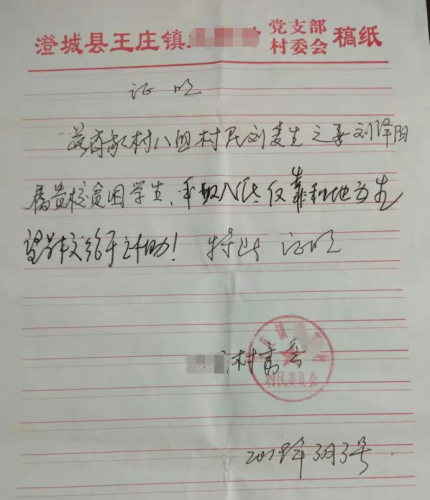 澄城县王庄镇 党支部 村委会 稿纸
证明
兹有我村八组村民刘麦生之子刘泽阳
属贵校贫困学生，年收入低仅靠种地为生
望贵校给予补助！特此证明
村委会
村民委员会
2019年3月3号